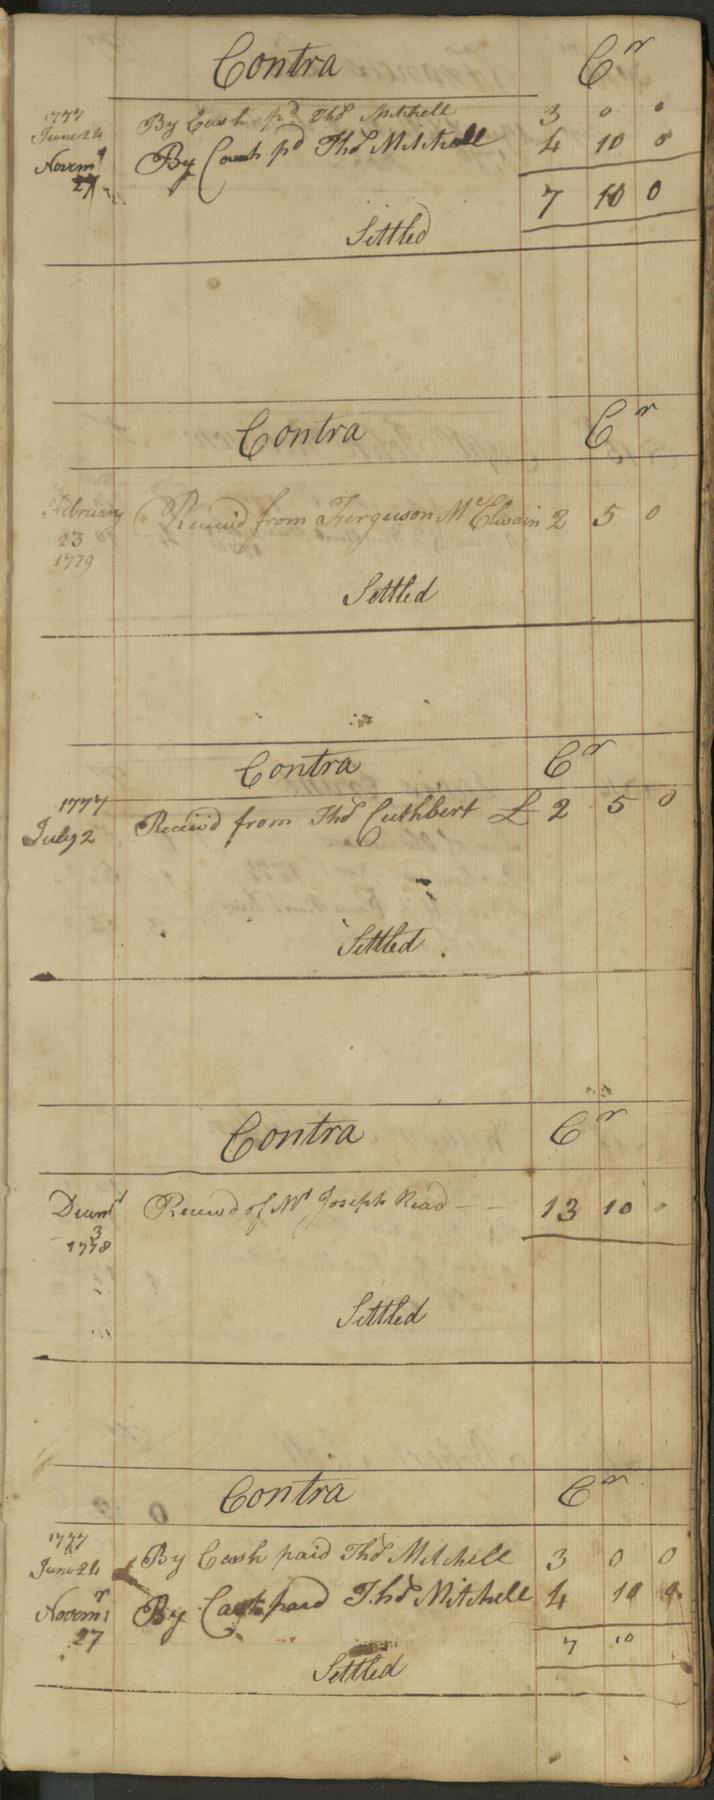 Contra Cr
1777
June 24 By Cash pd Thos Mitchell 3 0 0
Novemr By Cash pd Thos Mitchell 4 10 0
27
7 10 0
Settled
Contra Cr
February Receiv'd from Ferguson McElwain 2 5 0
23
1779
Settled
Contra Cr
1777
July 2 Receiv'd from Thos Cuthbert £ 2 5 0
Settled
Contra Cr
Decemr Received of Mr Joseph Read 13 10
3
1778
Settled
Contra Cr
1777
June 24 By Cash paid Thos Mitchell 3 0 0
Novemr By Cash paid Thos Mitchell 4 10 0
27
7 10
Settled